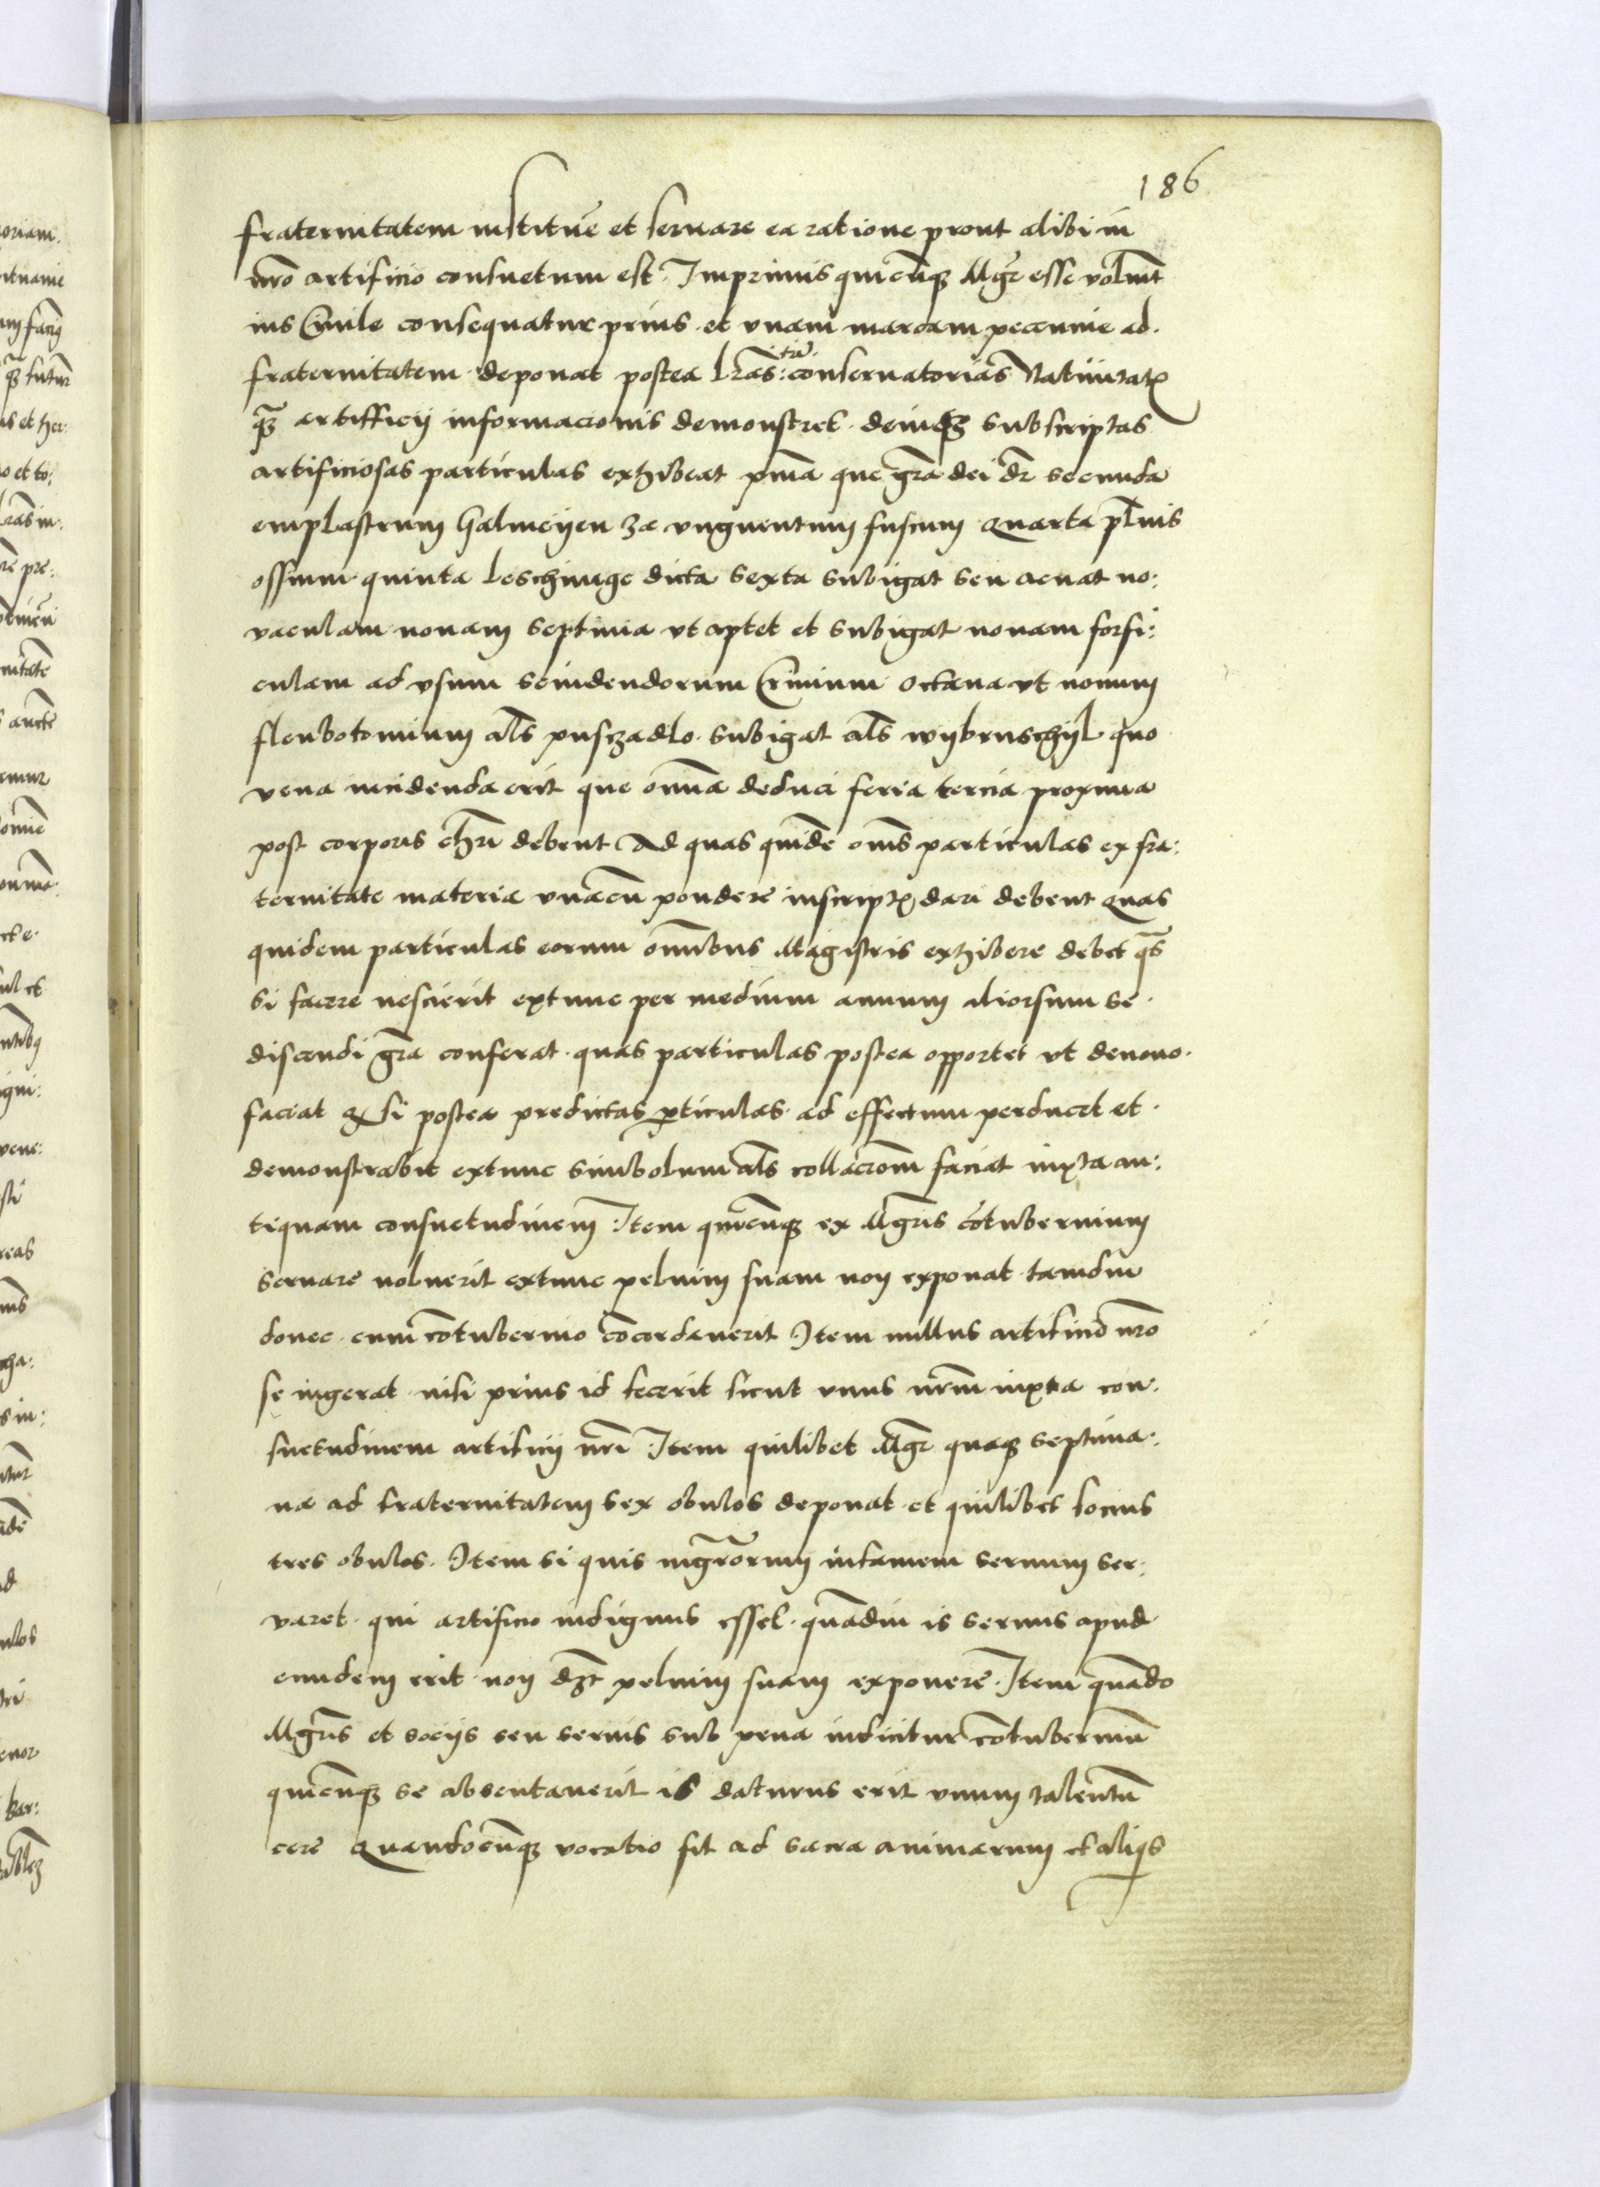 186
fraternitatem instituē et seruare ea ratione prout alibi in
nr̄o artificio consuetum est. Imprimis quicūq₃ Mgr̄ esse voluīt
ius Ciuile consequatur prius et vnam marcam pecunie ad
fraternitatem deponat postea lr̄as tū: conseruatorias Natiuitatꝭ
q₃ artifficij informacionis demonstret. deinde subscriptas
artificiosas particulas exhibeat pma que gr̄a dei dr̄ secunda
emplastrum Galmeijen 3a vnguentum fuscum Quarta pluis
ossium quinta leschunge dicta sexta subigat seu acuat no:
vaculam nouam septima vt aptet et subigat nouam forfi:
culam ad vsum scindendorum Crinium Octaua vt nouum
fleubotomium als pusczadlo subigat als wijbruschijl quo
vena incidenda erit que om̄a deduci feria tercia proxima
post corporis chr̄i debent Ad quas quidē om̄s particulas ex fra:
ternitate materia vnacū pondere inscriptꝭ dari debent Quas
quidem particulas eorum om̄ibus Magistris exhibere debet qs̄
si facere nescierit extunc per medium annum aliorsum se
discendi gr̄a conferat quas particulas postea opportet vt denouo
faciat Q, si postea predictas pticulas ad effectum perducet et
demonstrabit extunc simbolum als collacrom̄ faciat iuxta an:
tiquam consuetudinem Item quicūq₃ ex Mgr̄is cōtubernium
seruare noluerit extunc peluim suam non exponat tamdiu
donec cum cōtubernio cōcordauerit Item nullus artificio nr̄o
se ingerat nisi prius id fecerit sicut vnus nr̄m iuxta con:
suetudinem artificij nr̄i Item quilibet Mgr̄ quaq₃ septima:
na ad fraternitatem sex obulos deponat et quilibet socius
tres obulos. Item si quis mgr̄orum infamem seruum ser:
uaret qui artificio indignus esset quādiu is seruus apud
eundem erit non d₃t peluim suam exponere. Item quādo
Mgr̄is et socijs seu seruis sub pena indicitur cōtuberniū
quicūq₃ se absentauerit is daturus erit vnum talentū
cere Quandocūq₃ vocatio fit ad sacra animarum et aliqis